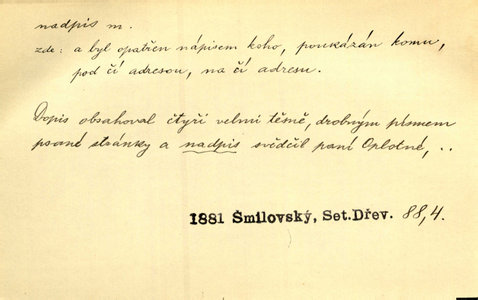 nadpis m.
zde: a byl opatřen nápisem koho, poukázán komu,
pod čí adresou, na čí adresu.
Dopis obsahoval čtyři velmi těsně, drobným písmem
psané stránky a nadpis svědčil paní Oplotné, ..
1881 Šmilovský, Set.Dřev. 88,4.